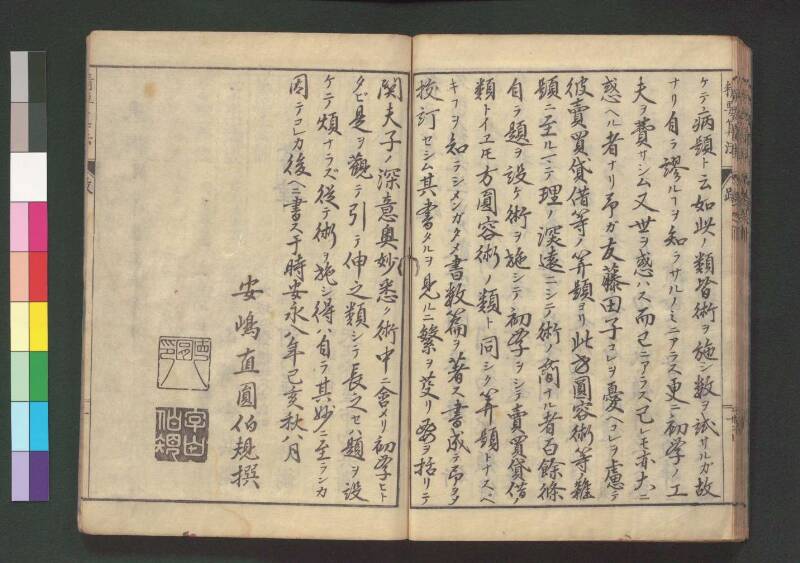 ケテ病題ト云如此ノ類皆術ヲ施シ数ヲ試サルガ故
ナリ自ラ謬ルヿヲ知ラサルノミニアラス更ニ初学ノ工
夫ヲ費サシム又世ヲ惑ハス而已ニアラス己レモ亦大ニ
惑ヘル者ナリ吊ガ友藤田子コレヲ憂ヘコレヲ慮テ
彼賣買貸借等ノ算題ヨリ此方圓容術等ノ雜
題ニ至ルマテ理ノ深遠ニシテ術ノ簡ナル者百餘條
自ラ題ヲ設ケ術ヲ施シテ初学ヲシテ賣買貸借ノ
類トイヱモ方圓容術ノ類ト同シク算題トナスヘ
キヿヲ知ラシメンガタメ書数篇ヲ著ス書成テ吊ヲメ
挍訂セシム其書タルヲ見ルニ繁ヲ芟リ要ヲ括リテ
関夫子ノ深意奥妙悉ク術中ニ會メリ初学ヒト
タビ是ヲ觀テ引テ伸之類シテ長之セハ題ヲ設
ケテ煩ナラズ從テ術ヲ施シ得ハ自ラ其妙ニ至ラシカ
因テコレカ後ヘニ書ス于時安永八年己亥秋八月
安嶋直圓伯規撰
直圓之印
字曰伯規
精要算法 跋